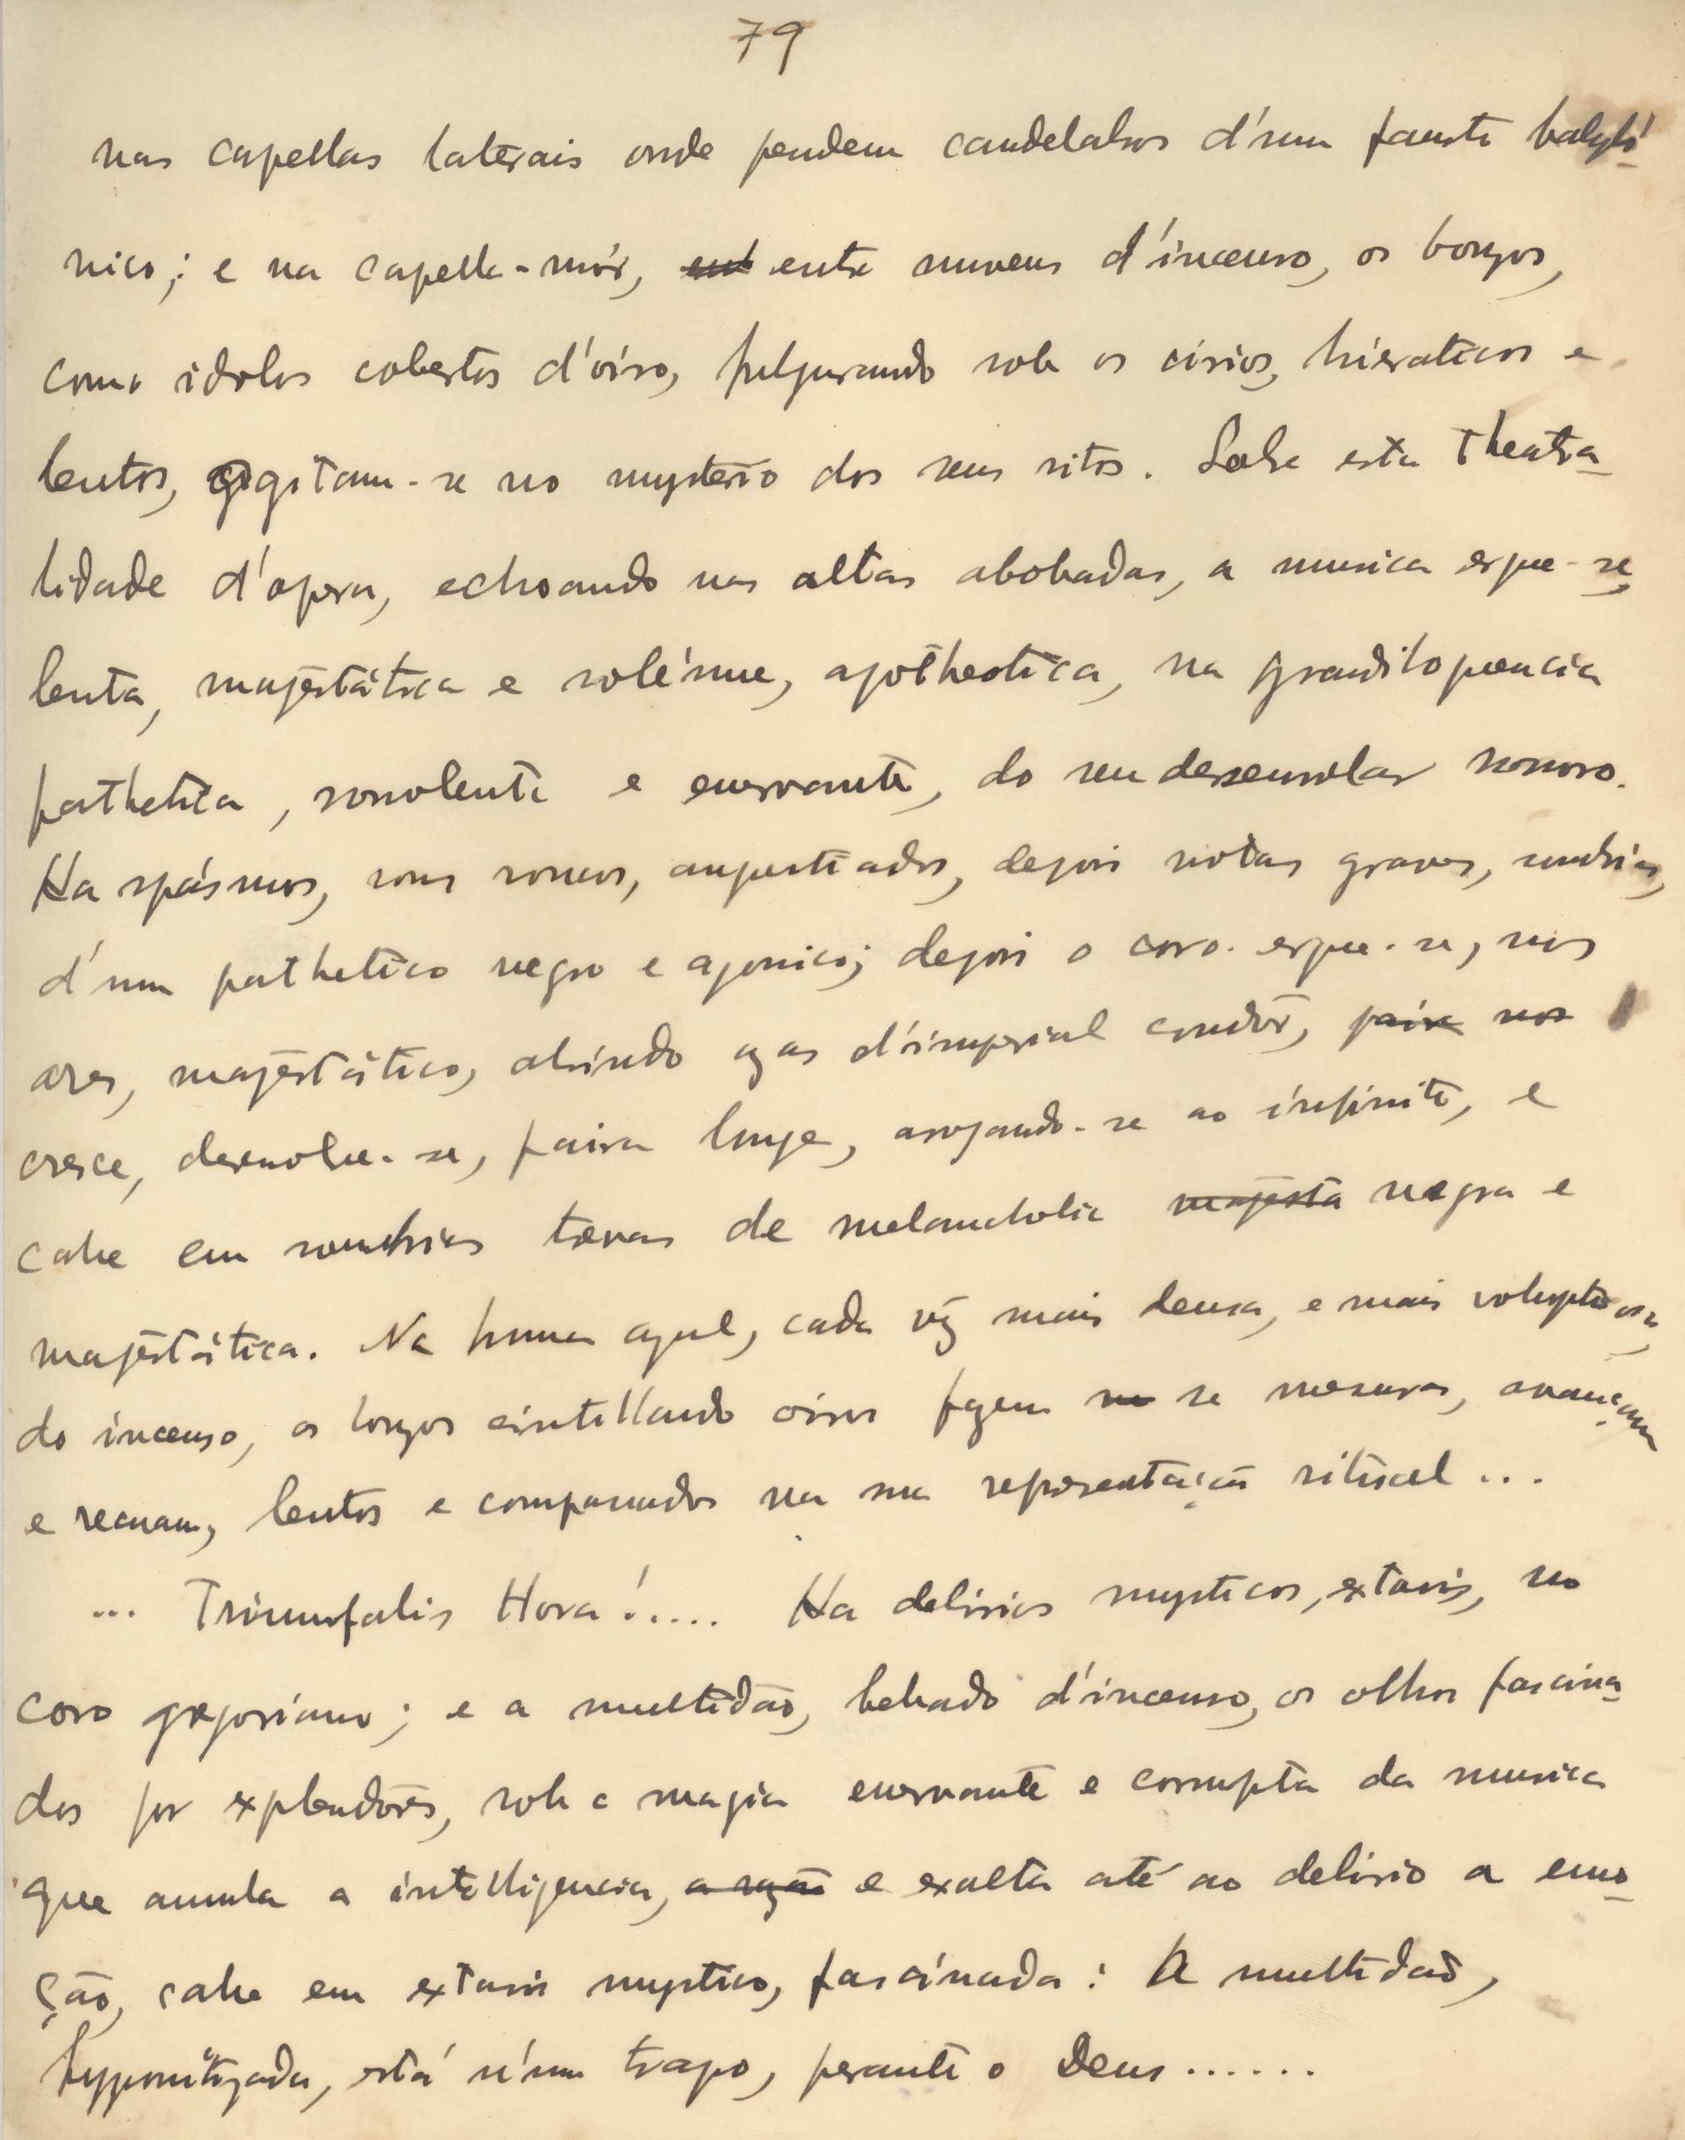 79
nas capellas laterais onde pendem candelabros d'um fausto babyló-
nico; e na capella-mór, ent entre nuvens d'incenso, os bonzos,
como idolos cobertos d'óiro, fulgurando sob os cirios, hieraticos e
lentos, agitam-se no mysterio dos seus ritos. Sobre esta theatra-
lidade d'opera, echoando nas altas abobadas, a musica ergue-se,
lenta, majestática e solémne, apotheotica, na grandiloquencia
pathetica, somolenta e enervante, do seu desenrolar sonoro.
Ha spásmos, sons roucos, angustiados, depois notas graves, sombrias,
d'um pathetico negro e agonico; depois o coro ergue-se, nos
ares, majestático, abrindo azas d'imperial condôr, paira nos
cresce, desenvolve-se, paira longe, arrojando-se ao infinito, e
cahe em sombrias trevas de melancholia majesta negra e
majestática. Na bruma azul, cada vêz mais densa, e mais voluptuosa,
do incenso, os bonzos cintillando oiros fazem se mesuras, avançam
e recuam, lentos e compassados na sua representação ritual...
... Triumfalis Hora!..... Ha delirios mysticos, extasis, no
coro gregoriano; e a multidão, bebado d'incenso, os olhos fascina-
dos por explendôres, sob a magia enervante e corrupta da musica
que annula a intelligencia, a razão e exalta até ao delirio a emo-
ção, cahe em extasis mystico, fascinada: A multidão,
hypnotizada, está n'um trapo, perante o Deus......